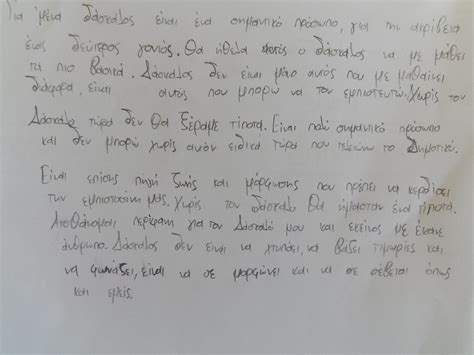 Για μένα δάσκαλος είναι ένα σημαντικό πρόσωπο, για την ακρίβεια
ένας δεύτερος γονιός. Θα ήθελα αυτός ο δάσκαλος να με μάθει
τα πιο βασικά. Δάσκαλος δεν είναι μόνο αυτός που με μαθαίνει
διάφορα, είναι αυτός που μπορώ να τον εμπιστευτώ. Χωρίς τον
Δάσκαλο τώρα δεν θα ξέραμε τίποτα. Είναι πολύ σημαντικό πρόσωπο
και δεν μπορώ χωρίς αυτόν ειδικά τώρα που τελειώνω το Δημοτικό.
Είναι επίσης πηγή ζωής και μόρφωσης που πρέπει να κερδίσει
την εμπιστοσύνη μας. Χωρίς τον δάσκαλο θα ήμασταν ένα τίποτα.
Αισθάνομαι περήφανη για τον Δάσκαλό μου και εκείνος με έκανε
άνθρωπο. Δάσκαλος δεν ειναι να χτυπάει, να βάζει τιμωρίες και
να φωνάζει, είναι να σε μορφώνει και να σε σέβεται όπως
και εμείς.